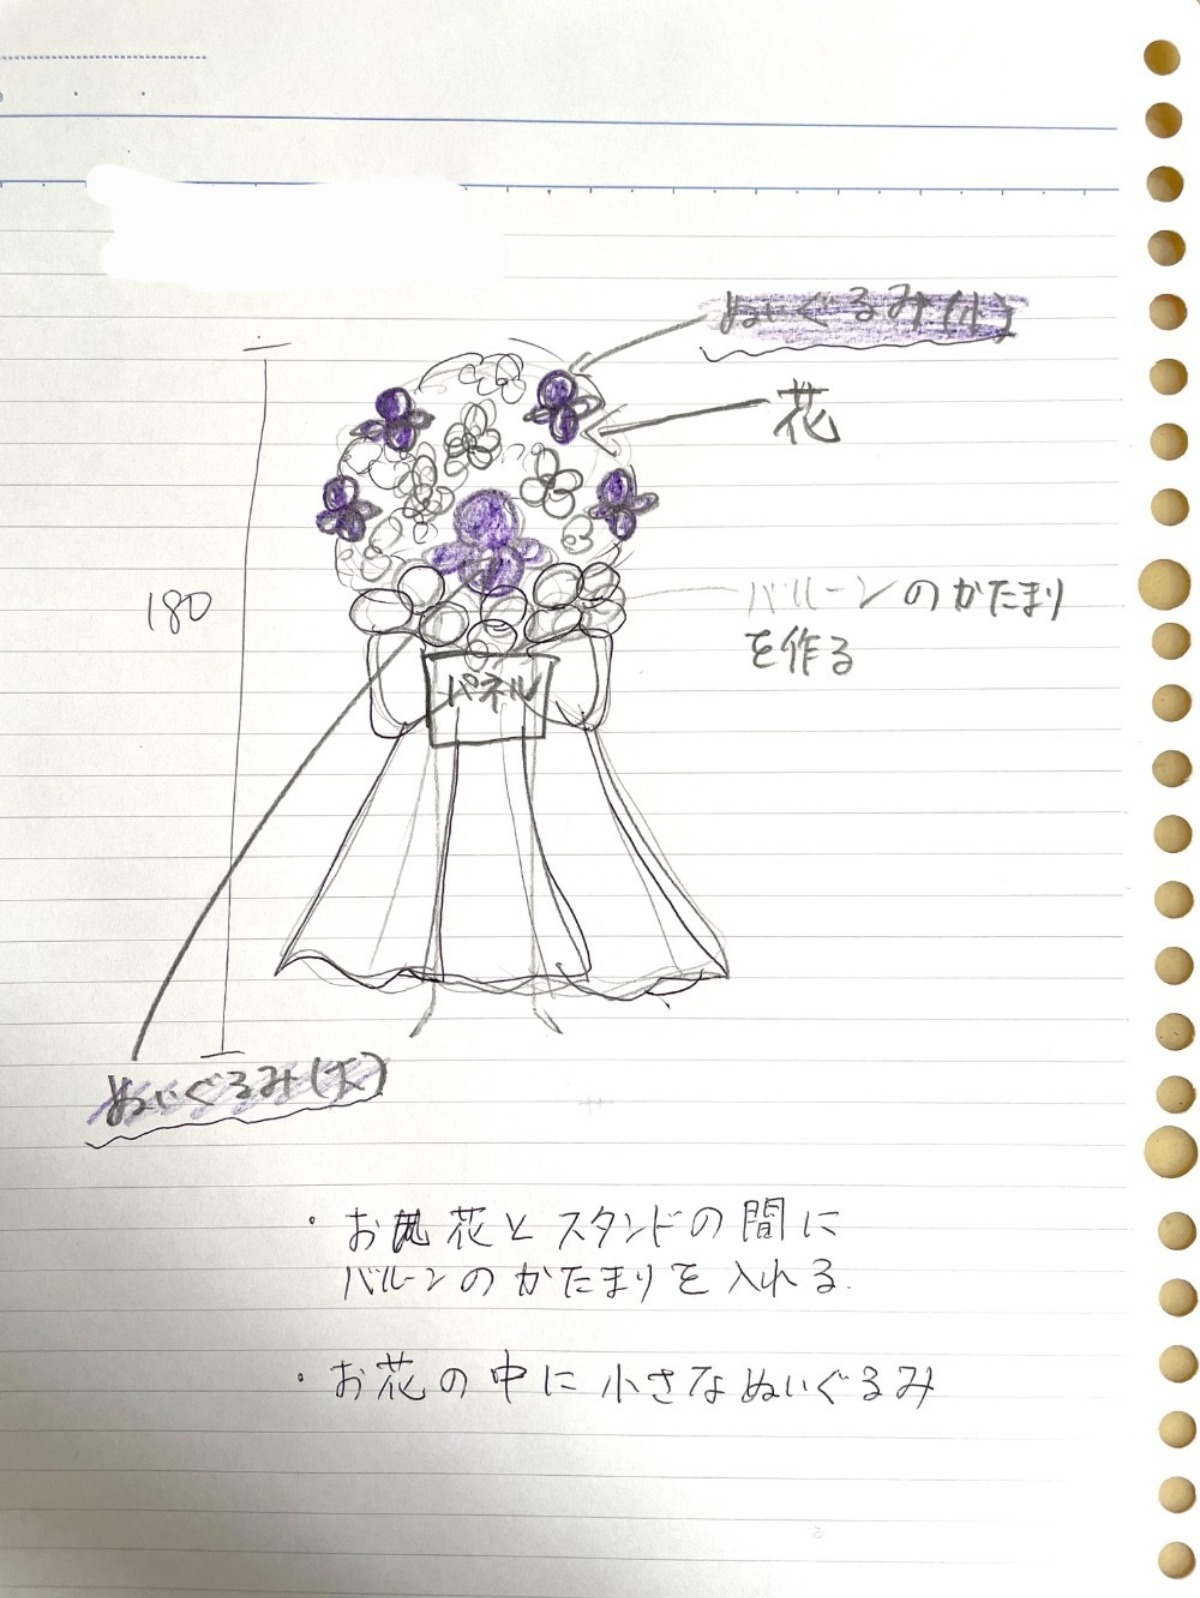 ぬいぐるみ(小)
花
180
バルーンのかたまり
を作る
パネル
ぬいぐるみ(大)
・お花とスタンドの間に
バルーンのかたまりを入れる.
・お花の中に小さなぬいぐるみ